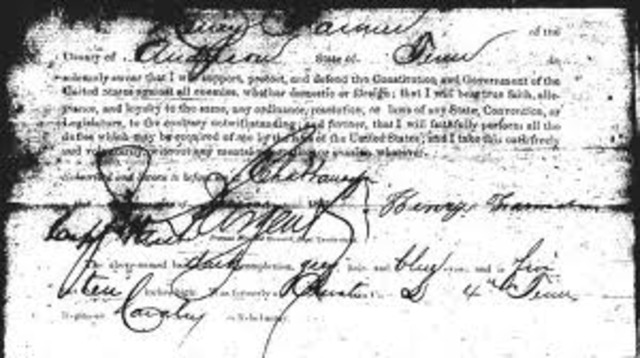 of the
County of Anderson State of Tenn do
solemnly swear that I will support, protect, and defend the Constitution and Government of the
United States against all enemies, whether domestic or foreign; that I will bear true faith, alle-
giance, and loyalty to the same, any ordinance, resolution, or laws of any State, Convention, or
Legislature, to the contrary notwithstanding; and further, that I will faithfully perform all the
duties which may be required of me by the laws of the United States; and I take this oath freely
and voluntarily, without any mental reservation or evasion whatever.
Subscribed and sworn to before
Henry
The above-named has dark complexion, grey hair, and blue eyes, and is five
ten inches high
was formerly a D 4th Tenn
Regiment Cavalry